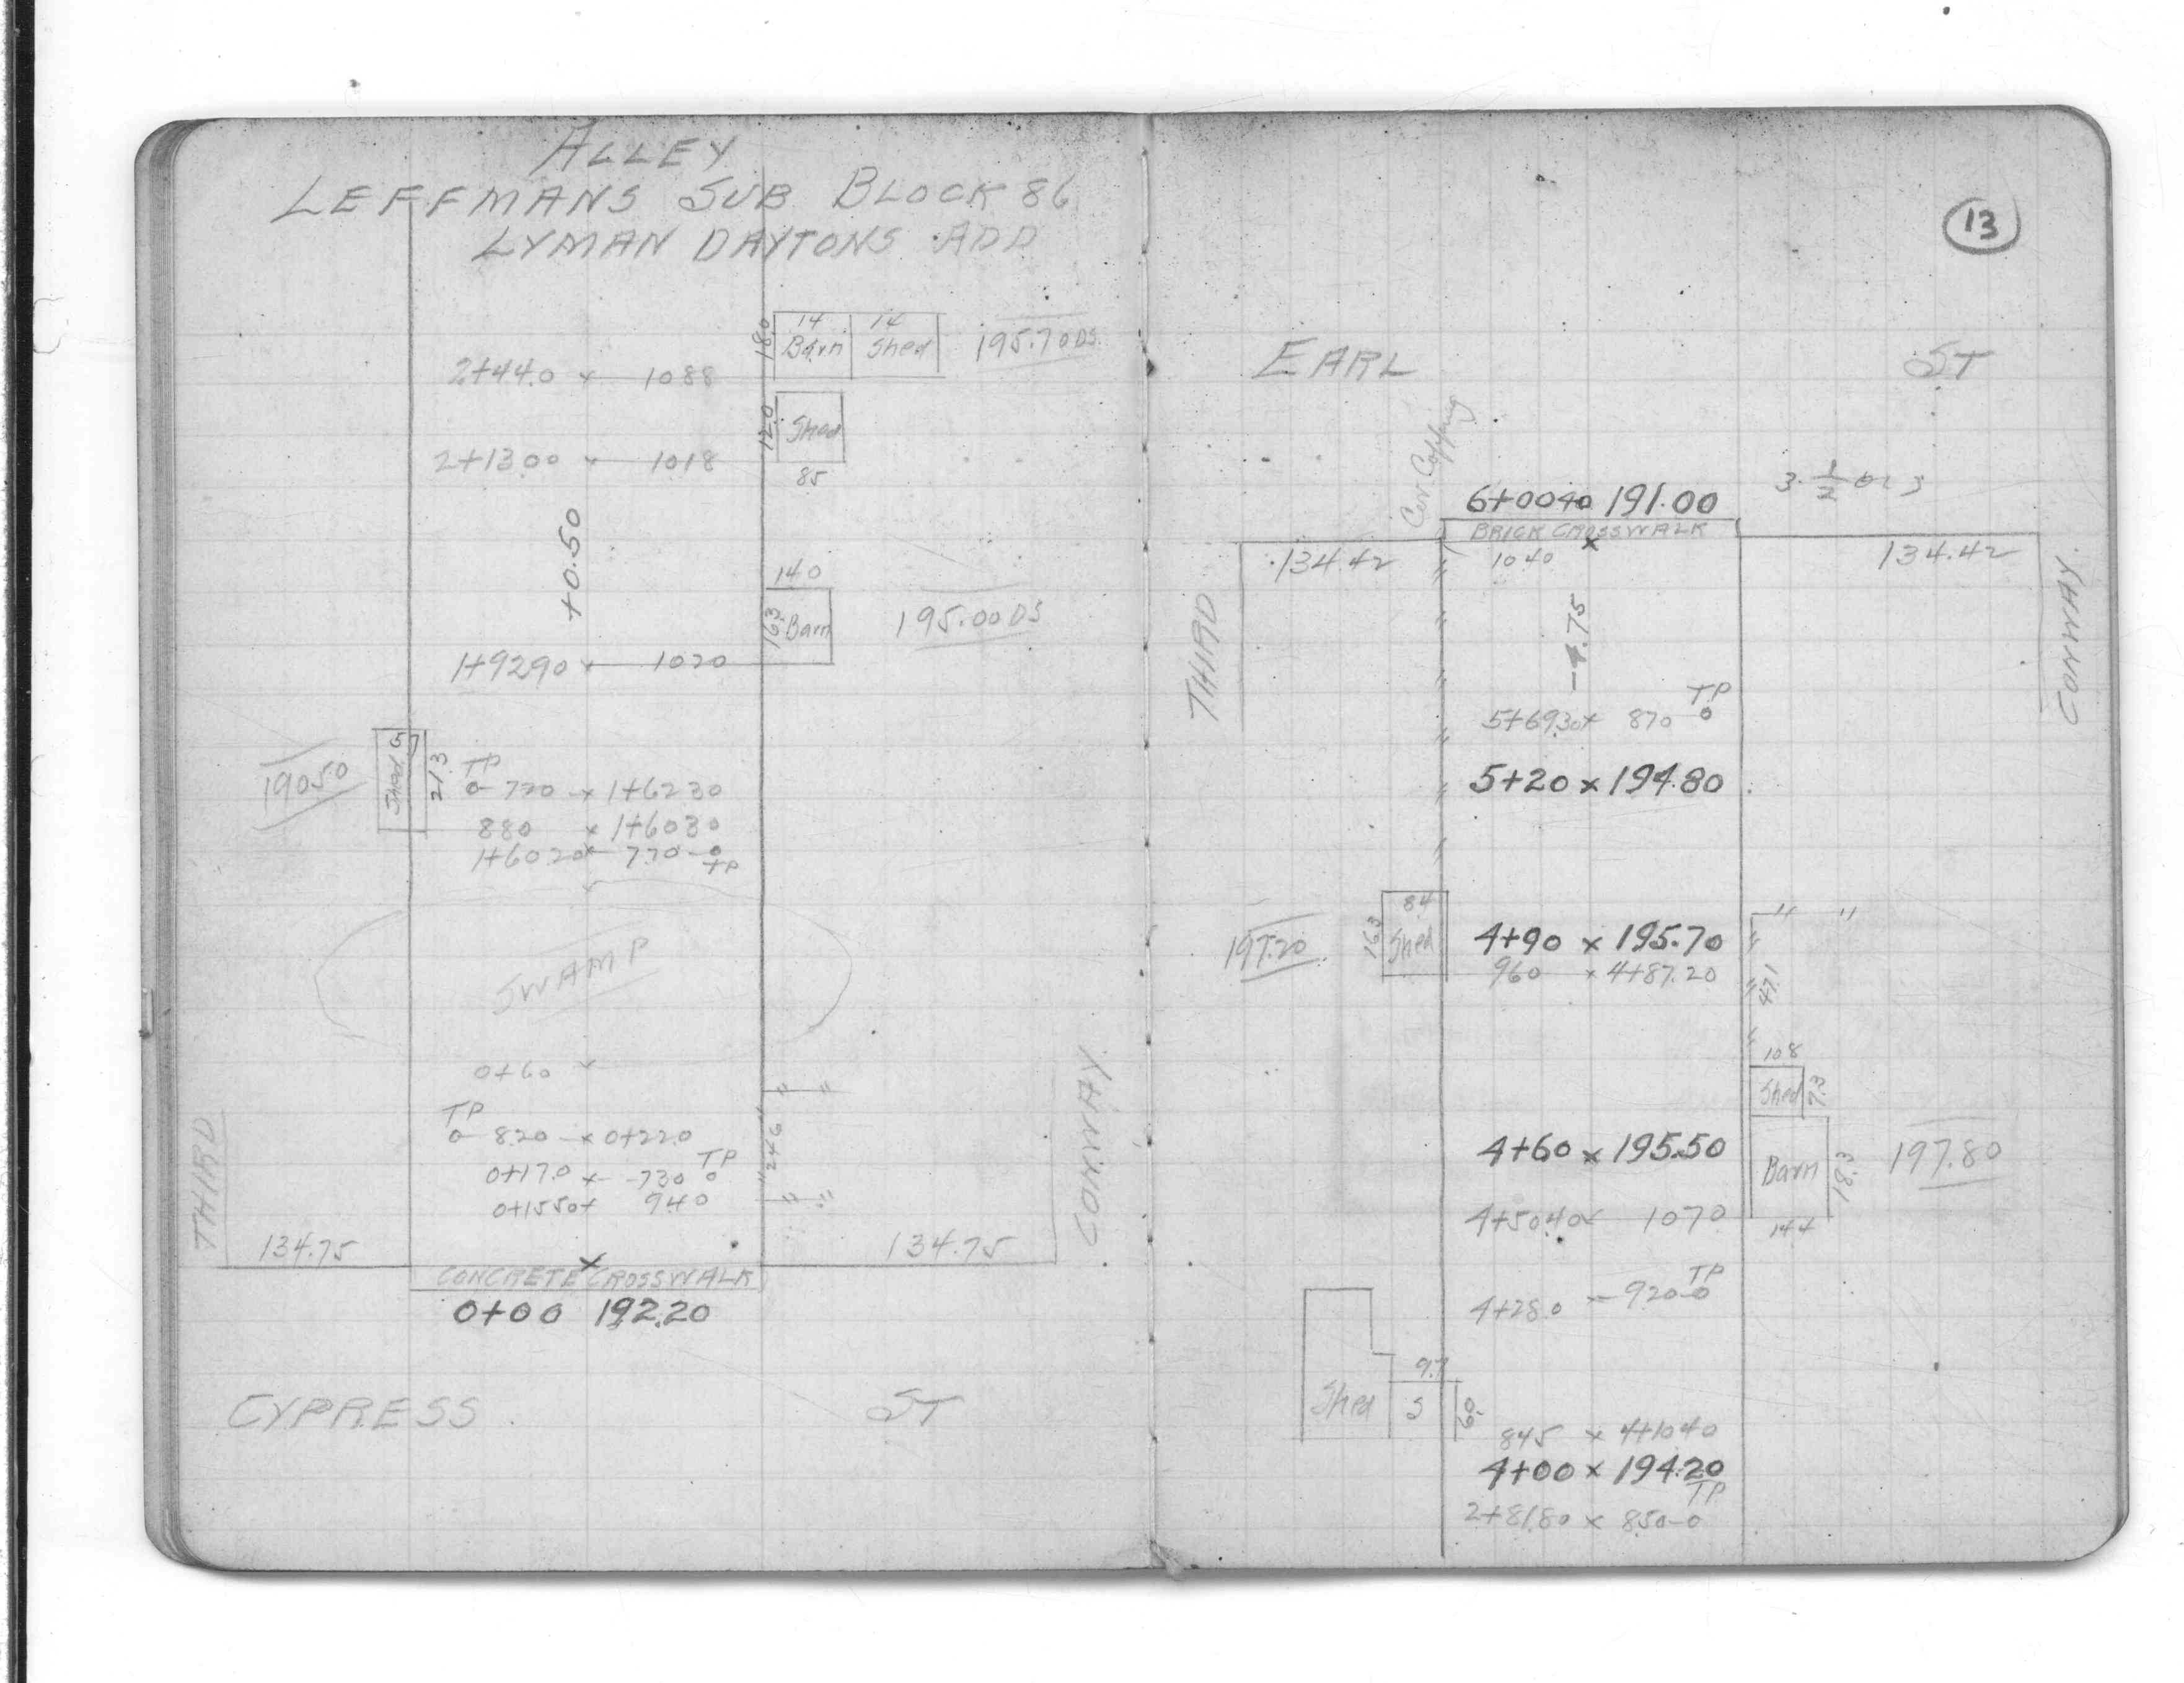 ALLEY
LEFFMANS SUB BLOCK 86
LYMAN DAYTONS ADD
180 14 14
Barn Shed 195.70 DS
2+44.0 x 1088
120 Shed
2+13.00 x 1018
85
+0.50
140
163 Barn 195.00 DS
1+92.90 x 1020
190.50 Shed 57 213
TP
0 770 x 1+62.30
880 x 1+60.30
1+60.20 x 7.70 0
TP
SWAMP
0+60 x
TP
0 8.20 x 0+22.0
0+17.0 x 730 0 TP
0+15.50 x 940
" 246 "
THIRD CONWAY
134.75 134.75
CONCRETE CROSSWALK
0+00 192.20
CYPRESS ST
13
EARL ST
Cor Copping
6+00.40 191.00
BRICK CROSSWALK
134.42 1040 x 134.42
THIRD CONWAY
-4.75
TP
5+69.30 x 870 0
5+20 x 194.80
84
197.20 163 Shed 4+90 x 195.70
960 x 4+87.20
47.1
108
Shed 7.3
4+60 x 195.50 Barn 18.3 197.80
4+50.40 x 1070
144
TP
4+28.0 920 0
9.7
Shed S 60
845 x 4+10.40
4+00 x 194.20
TP
2+81.80 x 850 0